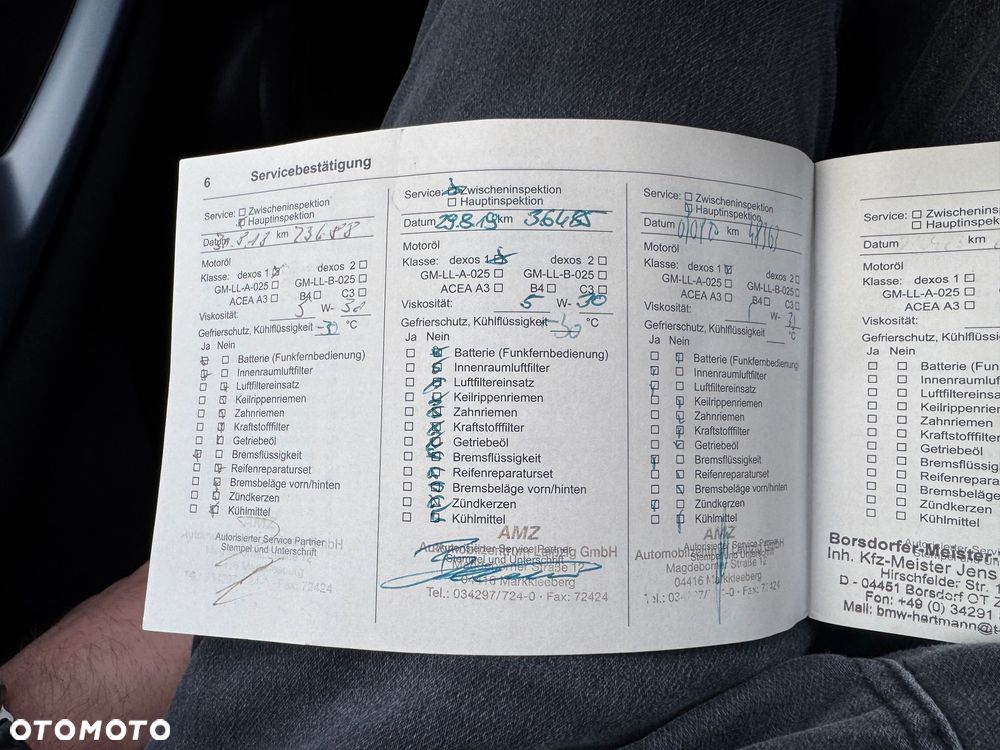 6 Servicebestätigung
Service: Zwischeninspektion
Hauptinspektion
Datum 8.18 km 23688
Motoröl
Klasse: dexos 1 dexos 2
GM-LL-A-025 GM-LL-B-025
ACEA A3 B4 C3
Viskosität: 5 W-
Gefrierschutz, Kühlflüssigkeit -30 °C
Ja Nein
Batterie (Funkfernbedienung)
Innenraumluftfilter
Luftfiltereinsatz
Keilrippenriemen
Zahnriemen
Kraftstofffilter
Getriebeöl
Bremsflüssigkeit
Reifenreparaturset
Bremsbeläge vorn/hinten
Zündkerzen
Kühlmittel
Autorisierter Service Partner
Stempel und Unterschrift
72424
Service: Zwischeninspektion
Hauptinspektion
Datum 29.8.19 km 36485
Motoröl
Klasse: dexos 1 dexos 2
GM-LL-A-025 GM-LL-B-025
ACEA A3 B4 C3
Viskosität: 5 W- 30
Gefrierschutz, Kühlflüssigkeit °C
Ja Nein
Batterie (Funkfernbedienung)
Innenraumluftfilter
Luftfiltereinsatz
Keilrippenriemen
Zahnriemen
Kraftstofffilter
Getriebeöl
Bremsflüssigkeit
Reifenreparaturset
Bremsbeläge vorn/hinten
Zündkerzen
Kühlmittel
AMZ
Autorisierter Service Partner
Stempel und Unterschrift
GmbH
Straße 12
Markkleeberg
Tel.: 034297/724-0 · Fax: 72424
Service: Zwischeninspektion
Hauptinspektion
Datum km
Motoröl
Klasse: dexos 1 dexos 2
GM-LL-A-025 GM-LL-B-025
ACEA A3 B4 C3
Viskosität: W-
Gefrierschutz, Kühlflüssigkeit °C
Ja Nein
Batterie (Funkfernbedienung)
Innenraumluftfilter
Luftfiltereinsatz
Keilrippenriemen
Zahnriemen
Kraftstofffilter
Getriebeöl
Bremsflüssigkeit
Reifenreparaturset
Bremsbeläge vorn/hinten
Zündkerzen
Kühlmittel
AMZ
Autorisierter Service Partner
Stempel und Unterschrift
Magdeborner Straße 12
04416 Markkleeberg
Fax: 72424
Service: Zwischenins
Hauptinspekti
Datum km
Motoröl
Klasse: dexos 1
GM-LL-A-025
ACEA A3
Viskosität:
Gefrierschutz, Kühlflüssi
Ja Nein
Batterie (F
Innenraumluf
Luftfiltereinsa
Keilrippenriem
Zahnriemen
Kraftstofffilter
Getriebeöl
Bremsflüssig
Reifenreparat
Bremsbeläge
Zündkerzen
Kühlmittel
Borsdorfer-Meister
Inh. Kfz-Meister Jens
Hirschfelder Str.
D - 04451 Borsdorf OT
Fon: +49 (0) 34291
Mail: bmw-hartmann@t-
OTOMOTO